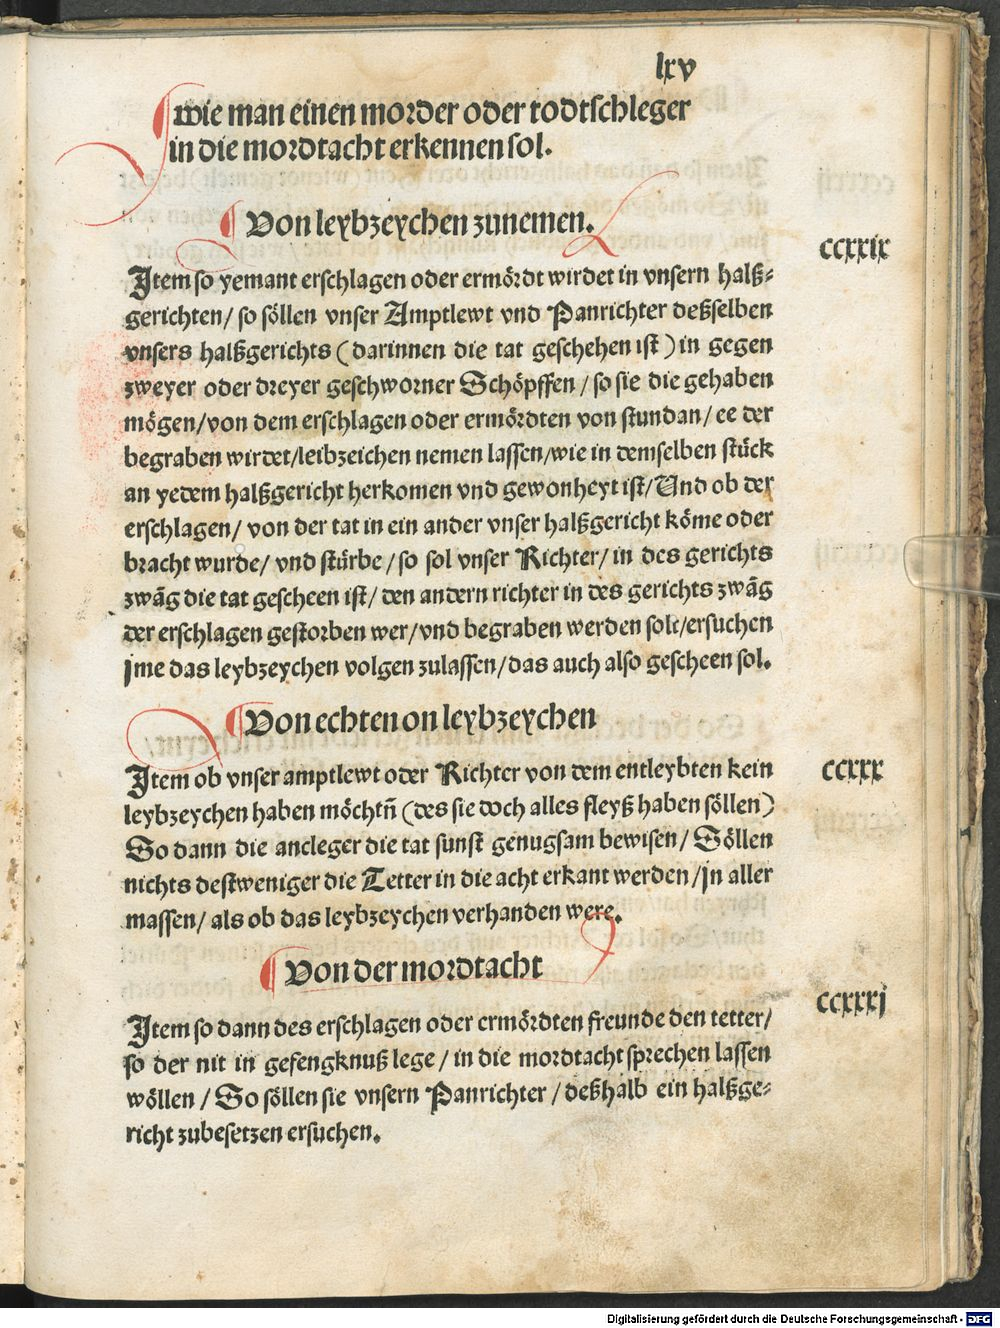 lxv
wie man einen morder oder todtschleger
in die mordtacht erkennen sol.
Von leybzeychen zunemen.
ccxxix
Item so yemant erschlagen oder ermördt wirdet in vnsern halß⸗
gerichten/ so söllen vnser Amptlewt vnd Panrichter deßselben
vnsers halßgerichts (darinnen die tat geschehen ist) in gegen
zweyer oder dreyer geschworner Schöpffen/ so sie die gehaben
mögen/von dem erschlagen oder ermördten von stundan/ ee der
begraben wirdet/leibzeichen nemen lassen/wie in demselben stück
an yedem halßgericht herkomen vnd gewonheyt ist/Und ob der
erschlagen/ von der tat in ein ander vnser halßgericht köme oder
bracht wurde/ vnd stürbe/ so sol vnser Richter/ in des gerichts
zwãg die tat gescheen ist/ den andern richter in des gerichts zwãg
der erschlagen gestorben wer/vnd begraben werden solt/ersuchen
jme das leybzeychen volgen zulassen/das auch also gescheen sol.
Von echten on leybzeychen
ccxxx
Item ob vnser amptlewt oder Richter von dem entleybten kein
leybzeychen haben möchtñ (des sie doch alles fleyß haben söllen)
So dann die ancleger die tat sunst genugsam bewisen/ Söllen
nichts destweniger die Tetter in die acht erkant werden/jn aller
massen/ als ob das leybzeychen verhanden were.
Von der mordtacht
ccxxxj
Item so dann des erschlagen oder ermördten freunde den tetter/
so der nit in gefengknuß lege/ in die mordtacht sprechen lassen
wöllen/ So söllen sie vnsern Panrichter/ deßhalb ein halßge⸗
richt zubesetzen ersuchen.
Digitalisierung gefördert durch die Deutsche Forschungsgemeinschaft - DFG